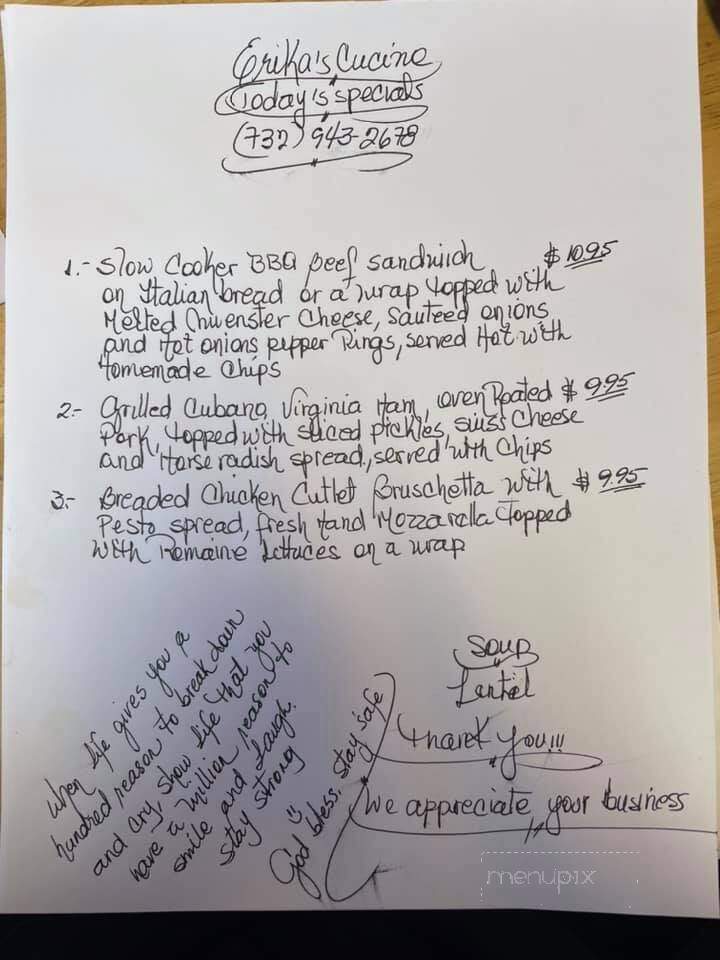 Erika's Cucina
Today's specials
(732) 943-2678
1.- Slow Cooker BBQ Beef sandwich $10.95
on Italian bread or a wrap topped with
Melted Muenster Cheese, Sauteed onions
and Hot onions pepper Rings, served Hot with
Homemade Chips
2.- Grilled Cubano, Virginia Ham, oven Roated $9.95
Pork, topped with sliced pickles, swiss Cheese
and Horseradish spread, served with Chips
3.- Breaded Chicken Cutlet Bruschetta with $9.95
Pesto spread, fresh Hand Mozzarella topped
with Romaine Lettuces on a wrap
When life gives you a
hundred reason to break down
and cry, show life that you
have a million reason to
smile and laugh.
stay strong
God bless, stay safe
Soup
Lentil
Thank You!!!
We appreciate your business
menupix